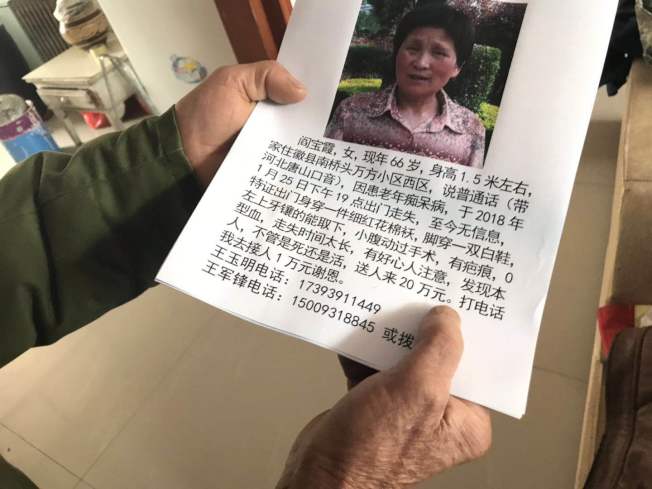 阎宝霞，女，现年66岁，身高1.5米左右，
家住徽县南桥头万方小区西区，说普通话（带
河北唐山口音），因患老年痴呆病，于2018年
1月25日下午19点出门走失，至今无信息，
特证出门身穿一件细红花棉袄，脚穿一双白鞋，
左上牙镶的能取下，小腹动过手术，有疤痕，O
型血，走失时间太长，有好心人注意，发现本
人，不管是死还是活，送人来20万元。打电话
我去接人1万元谢恩。
王玉明电话：17393911449
王军锋电话：15009318845 或拨